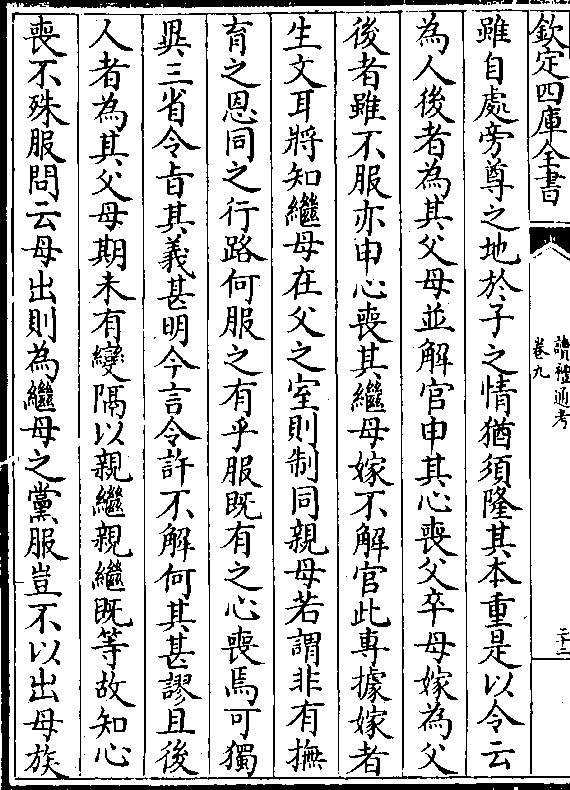 欽定四庫全書
讀禮通考
卷九
二十二
雖自處旁尊之地於子之情猶須隆其本重是以令云
為人後者為其父母並解官申其心喪父卒母嫁為父
後者雖不服亦申心喪其繼母嫁不解官此專據嫁者
生文耳將知繼母在父之室則制同親母若謂非有撫
育之恩同之行路何服之有乎服既有之心喪焉可獨
異三省令旨其義甚明今言令許不解何其甚謬且後
人者為其父母期未有變隔以親繼親繼既等故知心
喪不殊服問云母出則為繼母之黨服豈不以出母族